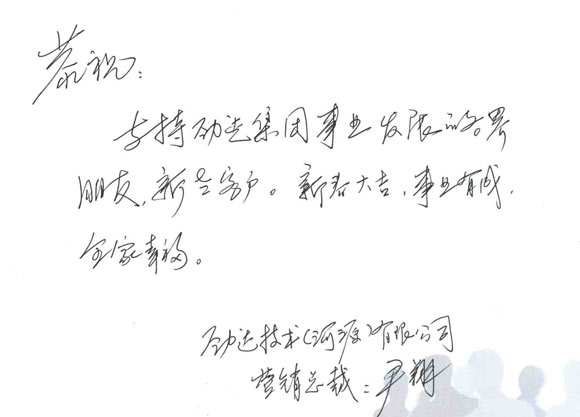 恭祝：
支持劲达集团事业发展的各界
朋友，新老客户。新春大吉，事业有成，
全家幸福。
劲达技术（河源）有限公司
营销总裁：尹翔